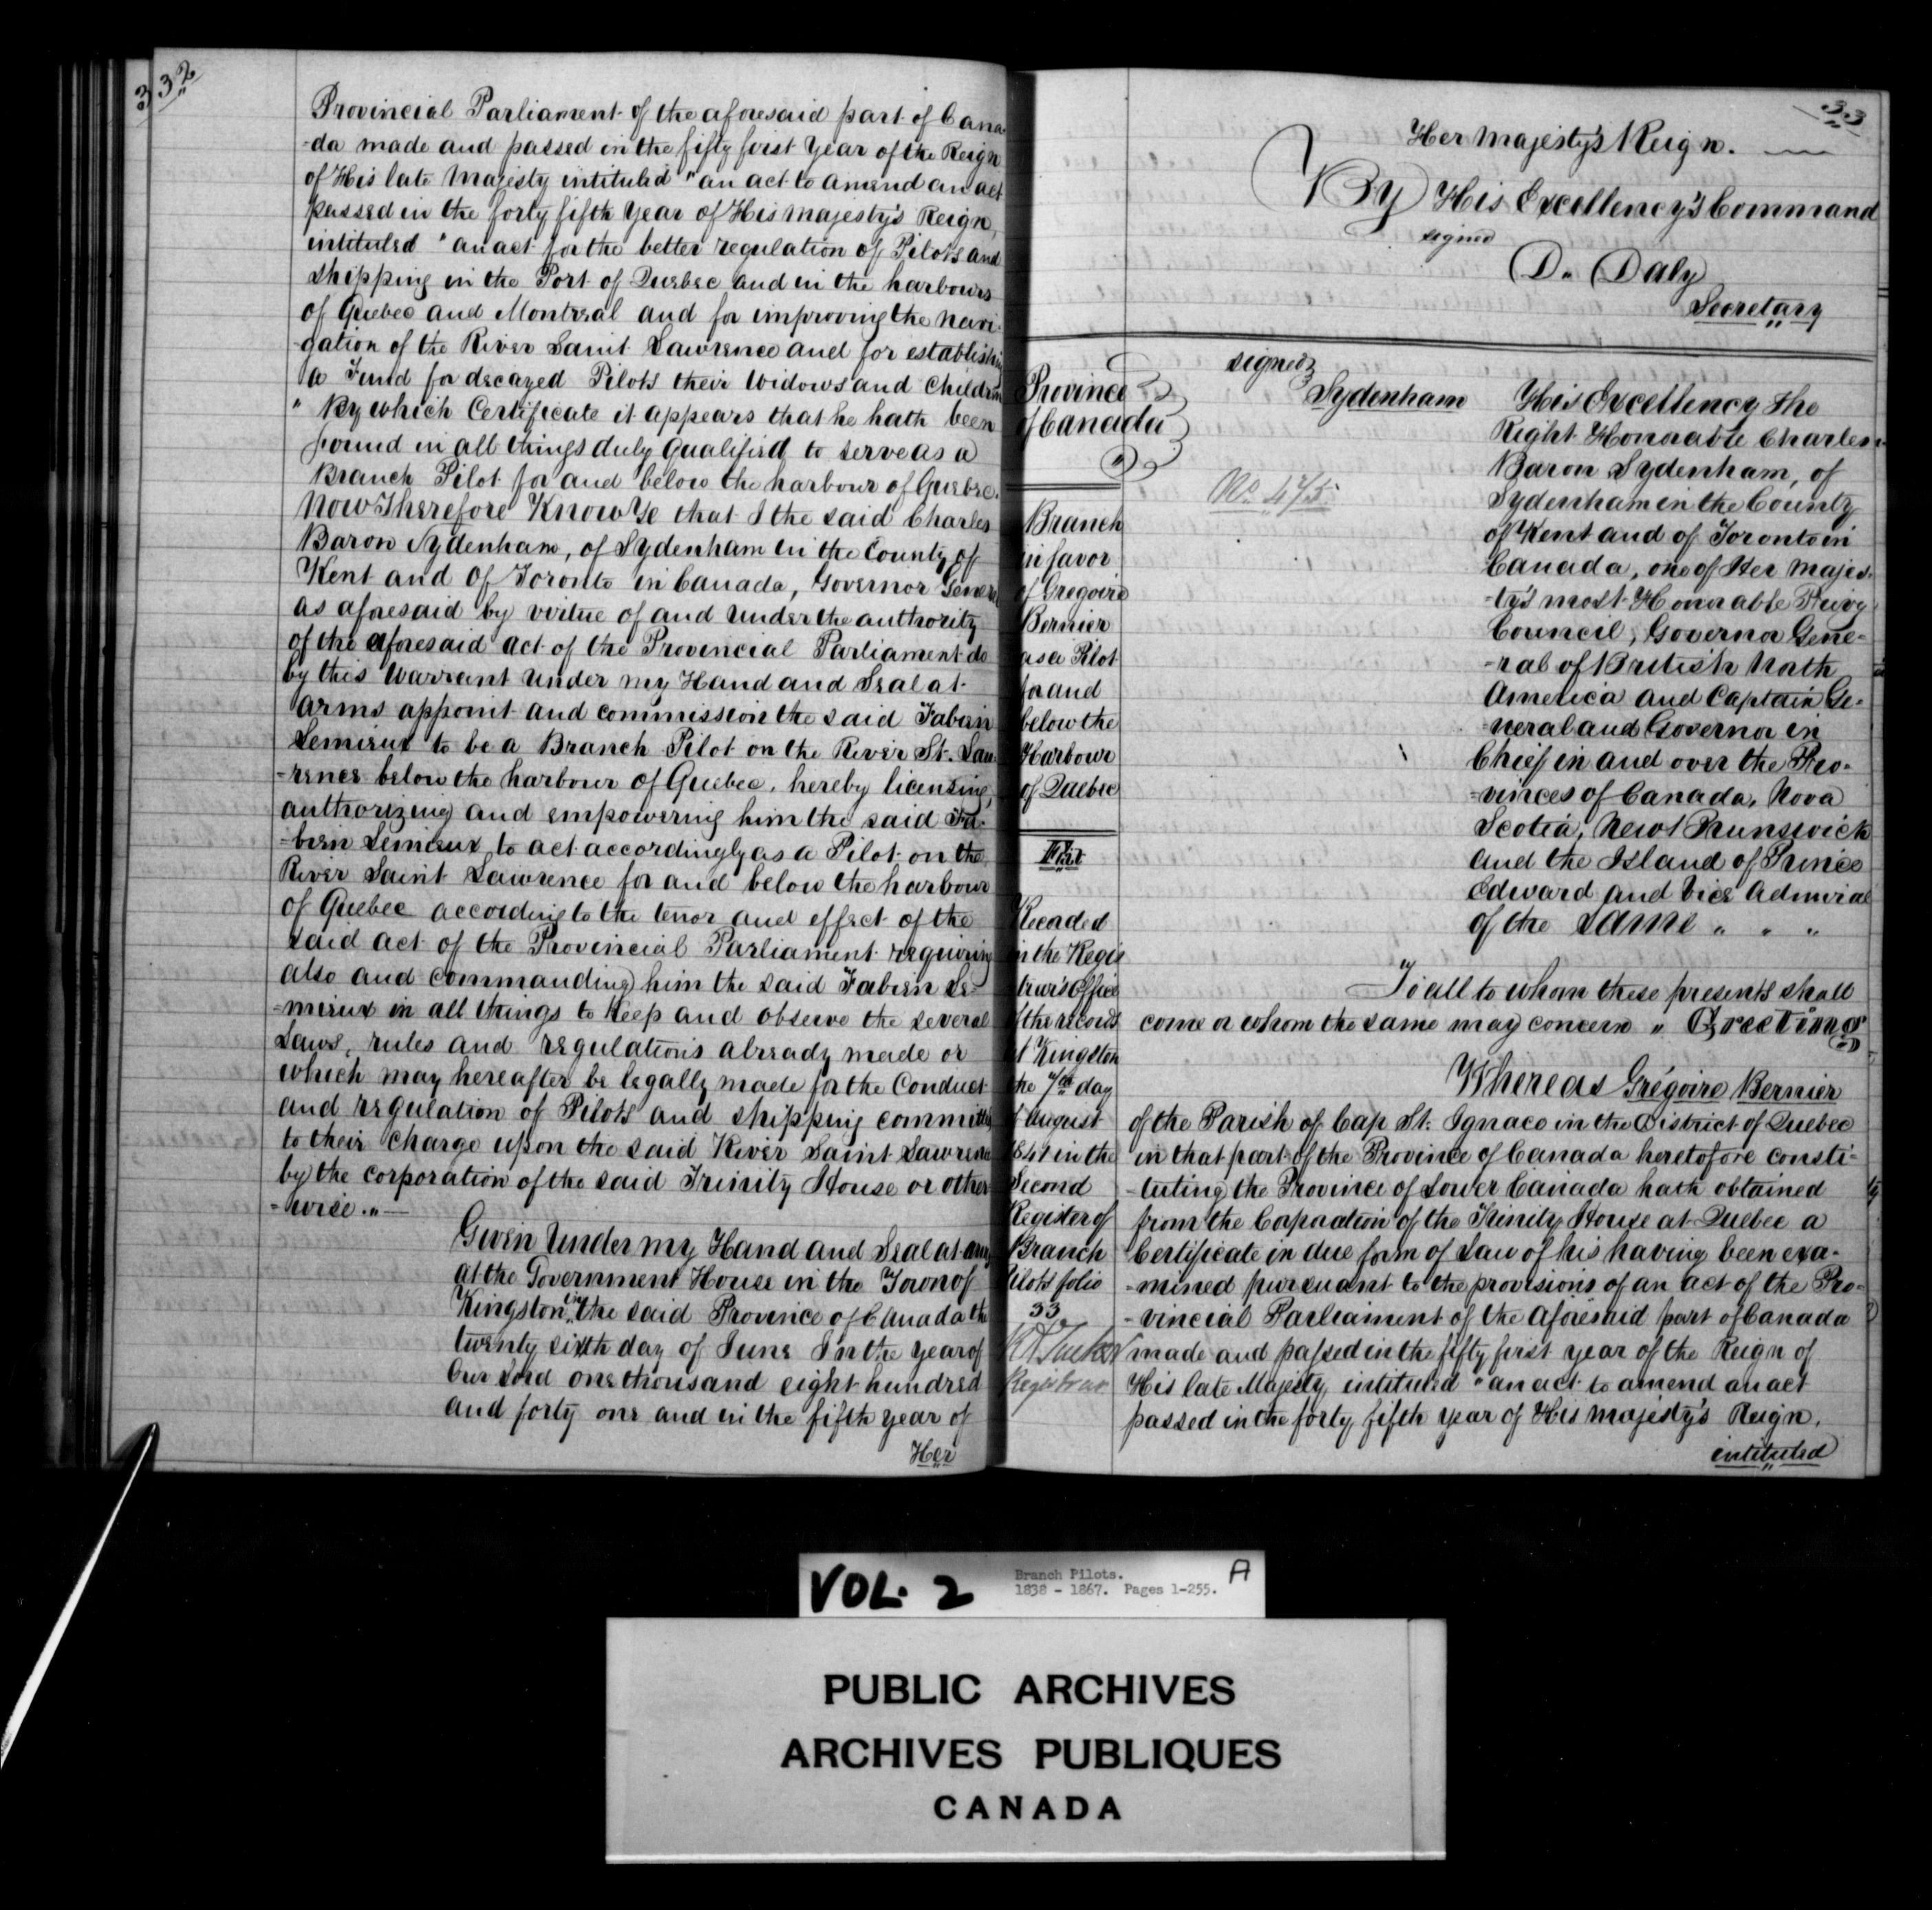 32
Provincial Parliament of the aforesaid part of Cana
-da made and passed in the fifty first Year of the Reign
of His late Majesty intituled "an act to amend an act
passed in the forty fifth Year of His Majesty's Reign,
intituled "an act for the better regulation of Pilots and
Shipping in the Port of Quebec and in the harbours
of Quebec and Montreal and for improving the navi-
-gation of the River Saint Lawrence and for establishing
a Fund for decayed Pilots their Widows and Children
" By which Certificate it appears that he hath been
found in all things duly qualified to serve as a
Branch Pilot for and below the harbour of Quebec.
Now Therefore Know Ye that I the said Charles
Baron Sydenham, of Sydenham in the County of
Kent and Of Toronto in Canada, Governor General
as aforesaid by virtue of and under the authority
of the aforesaid act of the Provincial Parliament do
by this Warrant under my Hand and Seal at
arms appoint and commission the said Fabien
Lemieux to be a Branch Pilot on the River St. Law
-rence below the harbour of Quebec, hereby licensing,
authorizing and empowering him the said Fa-
-bien Lemieux to act accordingly as a Pilot on the
River Saint Lawrence for and below the harbour
of Quebec according to the tenor and effect of the
said act of the Provincial Parliament requiring
also and commanding him the said Fabien Le-
-mieux in all things to keep and observe the several
Laws, rules and regulations already made or
which may hereafter be legally made for the Conduct
and regulation of Pilots and shipping committed
to their charge upon the said River Saint Lawrence
by the corporation of the said Trinity House or other
-wise. "—
Given Under my Hand and Seal at arms
at the Government House in the Town of
Kingston in the said Province of Canada the
twenty sixth day of June In the year of
Our Lord one thousand eight hundred
and forty one and in the fifth year of
Her
33
Her Majesty's Reign.
By His Excellency's Command
signed
D. Daly
Secretary
Province
of Canada
signed
Sydenham
No. 475
Branch
in favor
of Gregoire
Bernier
as a Pilot
for and
below the
Harbour
of Quebec
Fiat
Recorded
in the Regis
trar's Office
of the records
at Kingston
the 7th day
of August
1841 in the
Second
Register of
Branch
Pilots folio
33
Registrar
His Excellency The
Right Honorable Charles
Baron Sydenham, of
Sydenham in the County
of Kent and of Toronto in
Canada, one of Her Majes-
-ty's most Honorable Privy
Council, Governor Gene-
-ral of British North
America and Captain Ge-
-neral and Governor in
Chief in and over the Pro-
-vinces of Canada, Nova
Scotia, New Brunswick
and the Island of Prince
Edward and Vice Admiral
of the same " " "
To all to whom these presents shall
come or whom the same may concern " Greeting
Whereas Grégoire Bernier
of the Parish of Cap St. Ignace in the District of Quebec
in that part of the Province of Canada heretofore consti-
-tuting the Province of Lower Canada hath obtained
from the Corporation of the Trinity House at Quebec a
Certificate in due form of Law of his having been exa-
-mined pursuant to the provisions of an act of the Pro-
-vincial Parliament of the aforesaid part of Canada
made and passed in the fifty first year of the Reign of
His late Majesty intituled "an act to amend an act
passed in the forty fifth year of His Majesty's Reign,
intituled
VOL. 2
Branch Pilots.
1838 - 1867. Pages 1-255.
A
PUBLIC ARCHIVES
ARCHIVES PUBLIQUES
CANADA